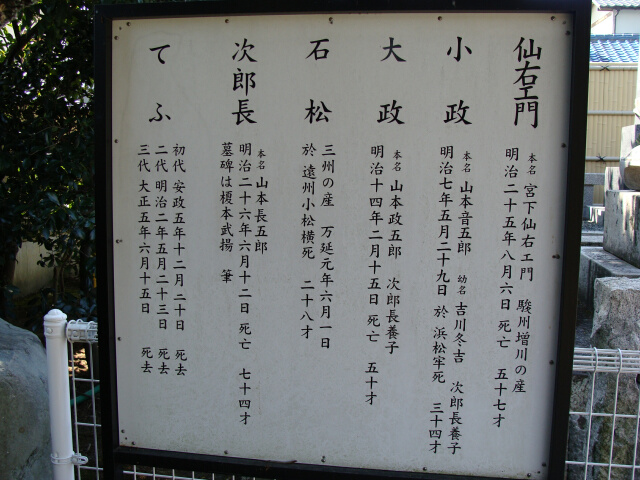 仙右エ門
本名 宮下仙右エ門 駿州増川の産
明治二十五年八月六日 死亡 五十七才
小政
本名 山本音五郎 幼名 吉川冬吉 次郎長養子
明治七年五月二十九日 於 浜松牢死 三十四才
大政
本名 山本政五郎 次郎長養子
明治十四年二月十五日 死亡 五十才
石松
三州の産 万延元年六月一日
於 遠州小松横死 二十八才
次郎長
本名 山本長五郎
明治二十六年六月十二日 死亡 七十四才
墓碑は榎本武揚 筆
てふ
初代 安政五年十二月二十日 死去
二代 明治二年五月二十三日 死去
三代 大正五年六月十五日 死去